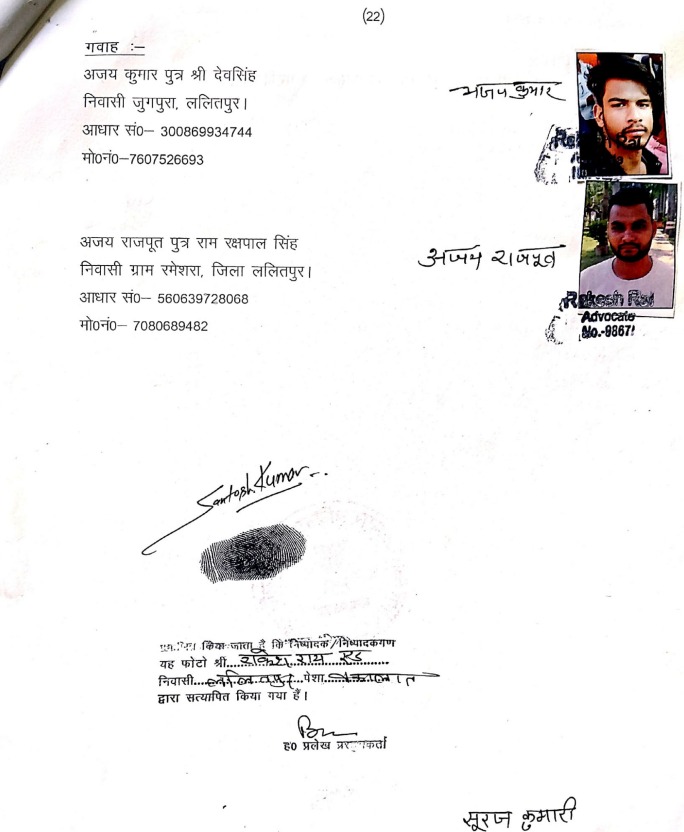 (22)
गवाह :–
अजय कुमार पुत्र श्री देवसिंह
निवासी जुगपुरा, ललितपुर।
आधार सं0– 300869934744
मो0नं0–7607526693
अजय कुमार
अजय राजपूत पुत्र राम रक्षपाल सिंह
निवासी ग्राम रमेशरा, जिला ललितपुर।
आधार सं0– 560639728068
मो0नं0– 7080689482
अजय राजपूत
Rakesh Rai
Advocate
No.-9867
Santosh Kumar
किया जाता है कि निष्पादक/निष्पादकगण
यह फोटो श्री....राकेश राय एड..........
निवासी....ललितपुर...पेशा...वकालात
द्वारा सत्यापित किया गया हैं।
ह0 प्रलेख
सूरज कुमारी